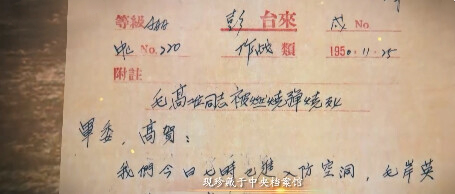 等級 彭台來 戌 No.
No. 220 作战 類 1950.11.25
附註
毛高参同志被燃燒彈燒死
軍委,高賀:
我們今日七时已進入防空洞,毛岸英
现珍藏于中央档案馆